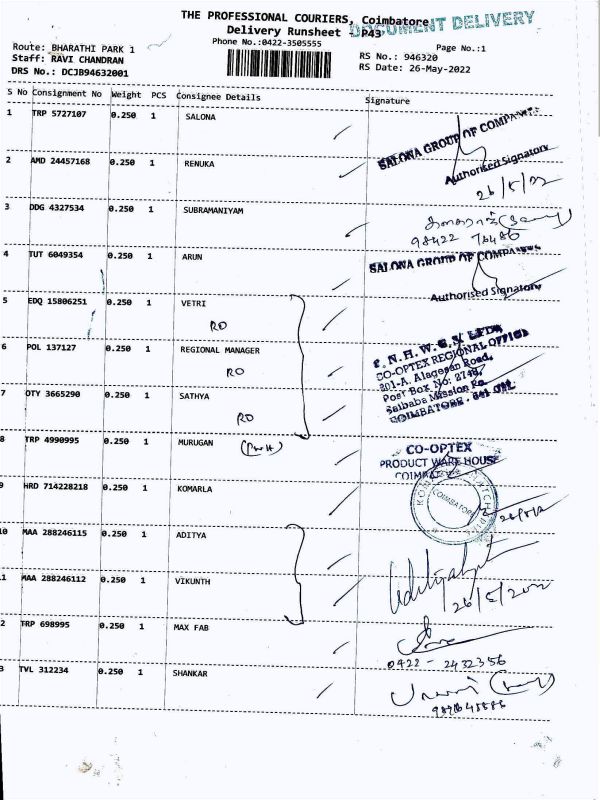 THE PROFESSIONAL COURIERS, Coimbatore
DOCUMENT DELIVERY
Delivery Runsheet - P43
Phone No.:0422-3505555
Page No.:1
Route: BHARATHI PARK 1
Staff: RAVI CHANDRAN
DRS No.: DCJB94632001
RS No.: 946320
RS Date: 26-May-2022
S No Consignment No Weight PCS Consignee Details Signature
1 TRP 5727107 0.250 1 SALONA
SALONA GROUP OF COMPANIES
Authorised Signatory
26/5/22
2 AMD 24457168 0.250 1 RENUKA
3 DDG 4327534 0.250 1 SUBRAMANIYAM
98422 76486
4 TUT 6049354 0.250 1 ARUN
SALONA GROUP OF COMPANIES
Authorised Signatory
5 EDQ 15806251 0.250 1 VETRI
RO
6 POL 137127 0.250 1 REGIONAL MANAGER
RO
CO-OPTEX REGIONAL OFFICE
201-A, Alagesan Road,
Post Box No. 2749,
Saibaba Mission Po.
COIMBATORE - 641
7 OTY 3665290 0.250 1 SATHYA
RO
8 TRP 4990995 0.250 1 MURUGAN
(PWH)
CO-OPTEX
PRODUCT WARE HOUSE
9 HRD 714228218 0.250 1 KOMARLA
COIMBATORE
10 MAA 288246115 0.250 1 ADITYA
11 MAA 288246112 0.250 1 VIKUNTH
26/5/2022
12 TRP 698995 0.250 1 MAX FAB
0422 - 2432356
13 TVL 312234 0.250 1 SHANKAR